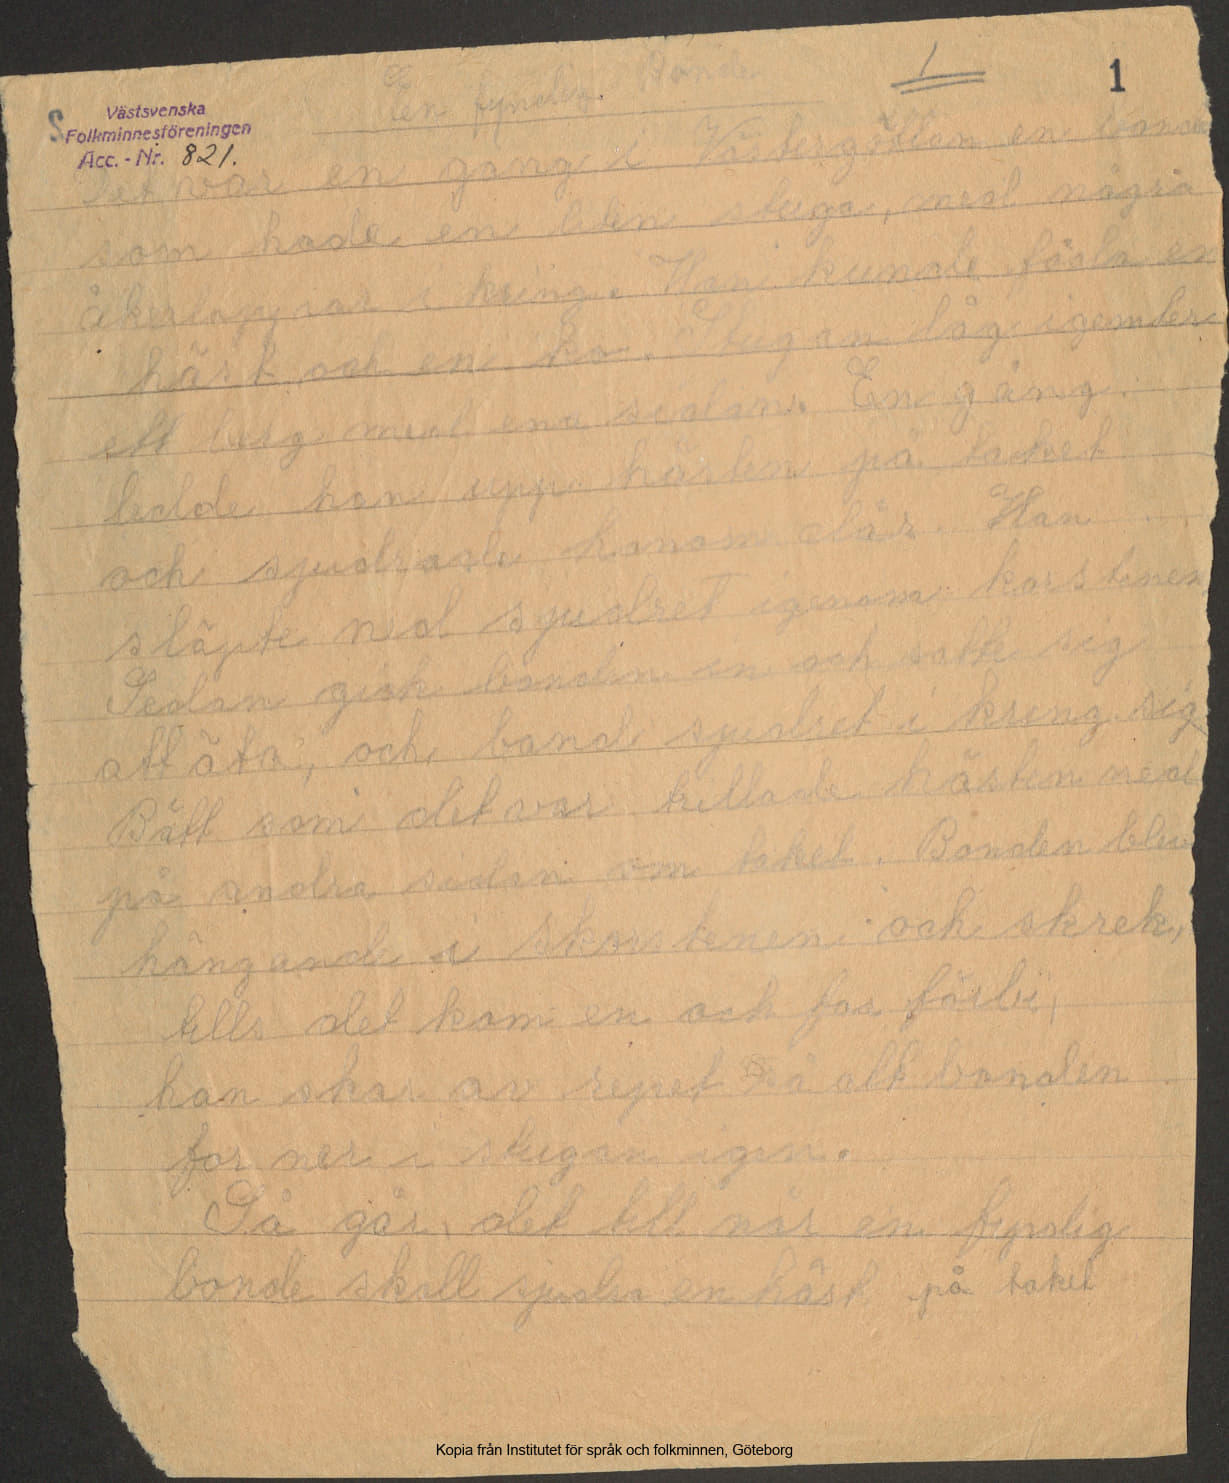 1
1
En fyndig Bonde
S
Västsvenska
Folkminnesföreningen
Acc. - Nr. 821.
Det var en gång i Västergötlan en bonde
som hade en liten stuga, med några
åkerlappar i kring. Han kunde föda en
häst och en ko. Stugan låg igember
ett berg med ena sidan. En gång
ledde han upp hästen på taket
och sjudrade honom där. Han
släpte ned sjudret igenom korstenen
Sedan gick bonden in och satte sig
att äta, och band sjudret i kring sig
Bäst som det var trillade hästen ned
på andra sidan om taket. Bonden blev
hängande i skorstenen och skrek,
tills det kom en och for förbi,
han skar av repet så att bonden
for ner i stugan igen.
Så går det till når en fyndig
bonde skall sjudra en häst på taket
Kopia från Institutet för språk och folkminnen, Göteborg